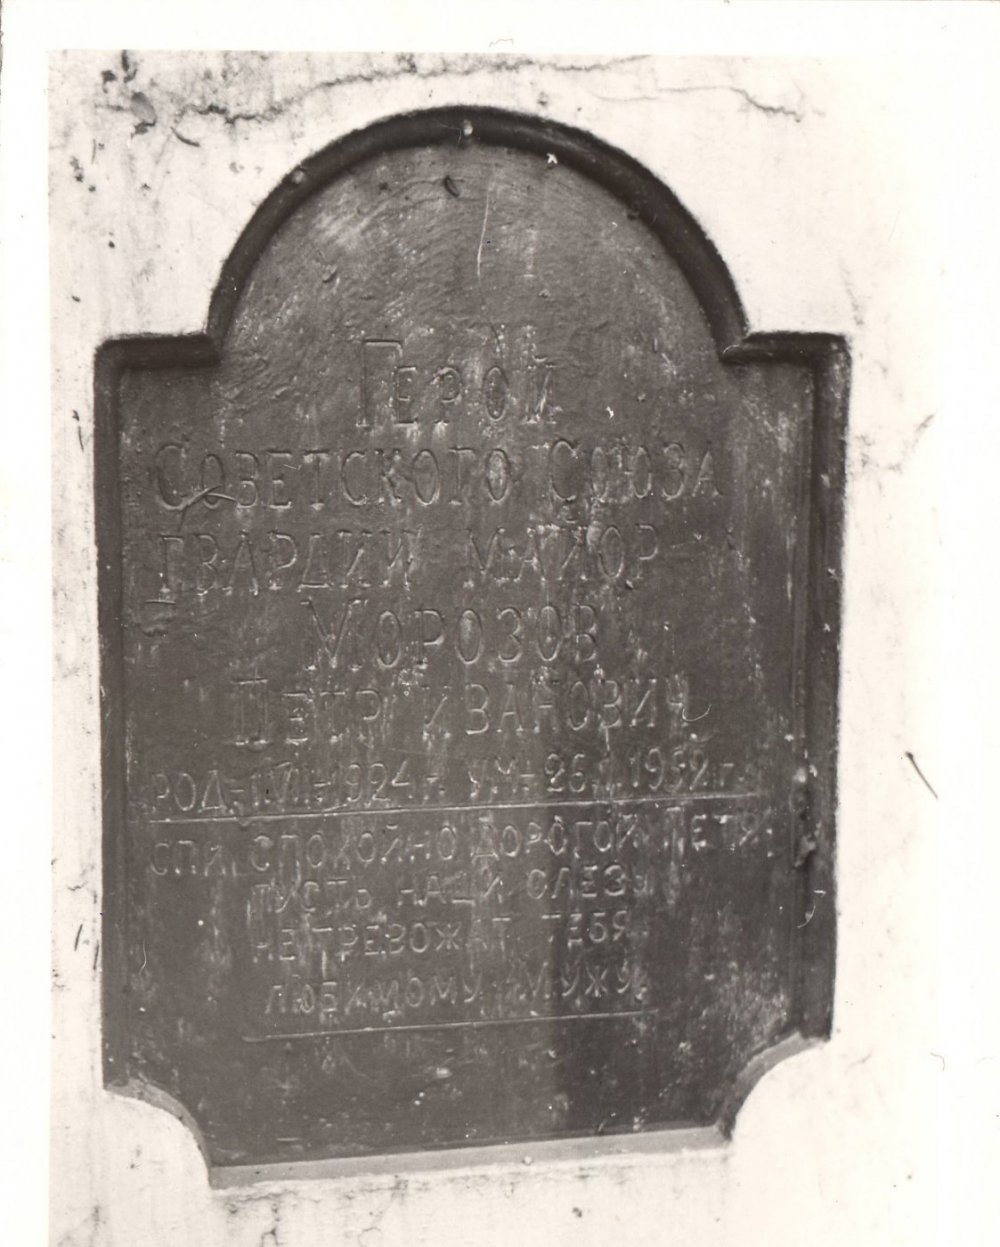 Герой
Советского Союза
гвардии майор
Морозов
Петр Иванович
род.-1.VII-1924 г. ум.-26. 1952 г.
спи спокойно дорогой Петя
пусть наши слезы
не тревожат тебя
любимому мужу.